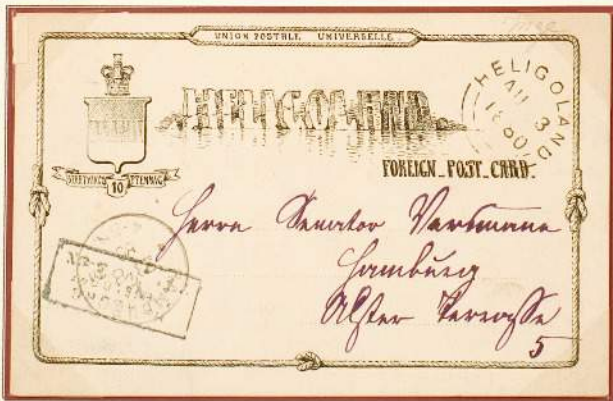 UNION POSTALE UNIVERSELLE
HELIGOLAND
HELIGOLAND
AU 3
1880
FOREIGN POST CARD.
10 PFENNIG
Herrn Senator Versmann
Hamburg
Alster Terrasse
5